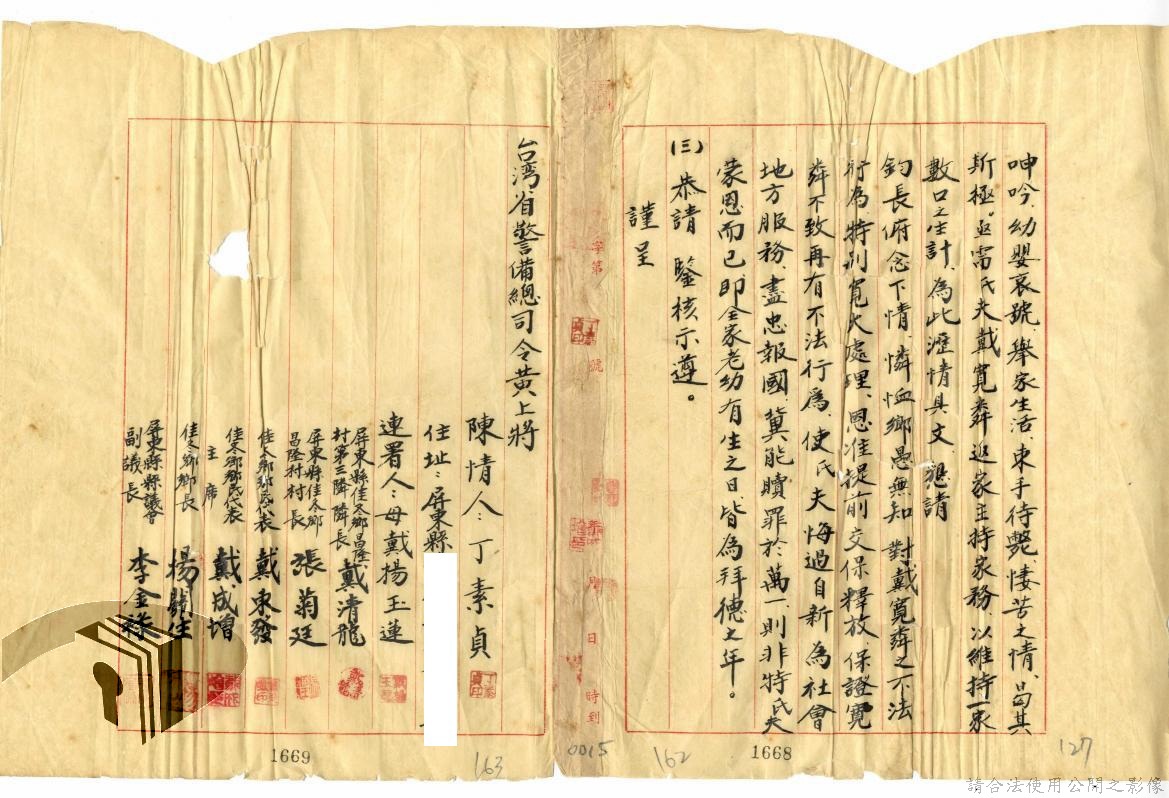 呻吟、幼嬰哀號、舉家生活、束手待斃、悽苦之情、曷其
斯極。亟需氏夫戴寬粦返家主持家務、以維持一家
數口之生計、為此瀝情具文、懇請
鈞長俯念下情、憐恤鄉愚無知、對戴寬粦之不法
行為、特別寬大處理、恩准提前交保釋放、保證寬
粦不致再有不法行為、使氏夫悔過自新、為社會
地方服務、盡忠報國、冀能贖罪於萬一、則非特氏夫
蒙恩而已、即全家老幼有生之日、皆為拜德之年。
(三)恭請 鑒核示遵。
謹呈
字第 號
日 時到
台湾省警備總司令黃上將
陳情人：丁素貞
住址：屏東縣
連署人：母戴揚玉蓮
屏東縣佳冬鄉昌隆村第三隣隣長 戴清龍
屏東縣佳冬鄉昌隆村村長 張菊廷
佳冬鄉鄉民代表 戴東發
佳冬鄉鄉民代表主席 戴成增
佳冬鄉鄉長 楊
屏東縣縣議會副議長 李金
1669
163
0015
162
1668
127
請合法使用公開之影像